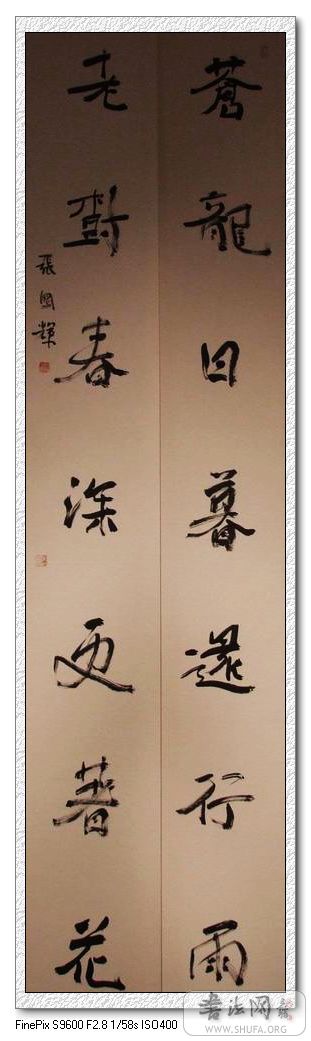 蒼龍日暮還行雨
老樹春深更著花
張國輝
FinePix S9600 F2.8 1/58s ISO400
书法网
WWW.SHUFA.ORG